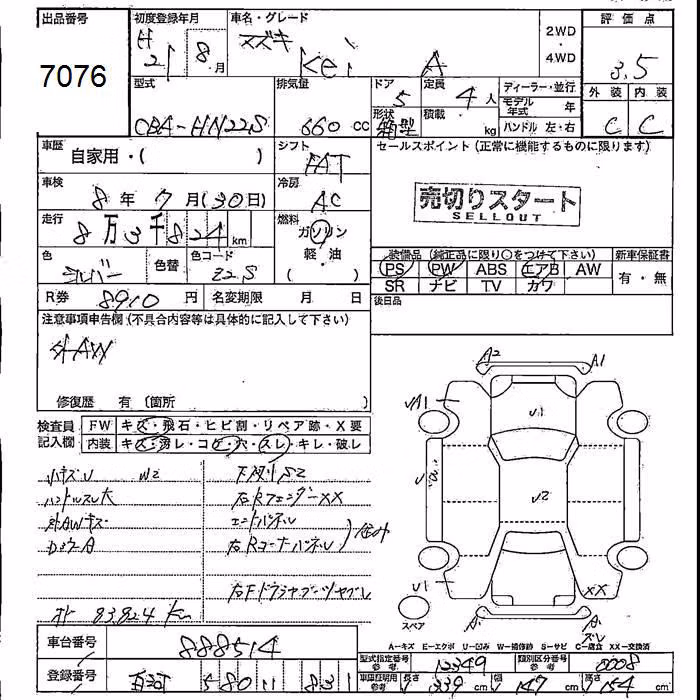 出品番号 7076
初度登録年月 H 21 8月
車名・グレード スズキ Kei A
2WD・4WD
評価点 3.5
外装 C 内装 C
型式 CBA-HN22S
排気量 660 cc
ドア 5 形状 箱型
定員 4人 積載 kg
ディーラー・並行
モデル年式 年
ハンドル 左・右
車歴 自家用・( )
シフト FAT
セールスポイント (正常に機能するものに限ります)
車検 8年7月(30日)
冷房 AC
売切りスタート
SELLOUT
走行 8万3千824km
燃料 ガソリン 軽・油 ( )
色 シルバー 色替 色コード Z2S
装備品 (純正品に限り○をつけて下さい) 新車保証書
PS PW ABS エアB AW 有・無
SR ナビ TV カワ
R券 8910円 名変期限 月 日
後日品
注意事項申告欄 (不具合内容等は具体的に記入して下さい)
外AW
修復歴 有 〔箇所 〕
A2 A1
検査員記入欄 FW キズ・飛石・ヒビ割・リペア跡・X要
内装 キズ・汚レ・コゲ・穴・スレ・キレ・破レ
√A1 √1
√2
√1 XX
小キズU W2
ハンドルスレ大
外AWキズ
下廻りS2
右RフェンダーXX
エンドパネル
右Rコーナーパネル
右Fドライブシャブーツヤブレ
オド 83,824 Km
スペア
車台番号 888514
A-キズ E-エクボ U-凹み W-補修跡 S-サビ C-腐食 XX-交換済
型式指定番号 参考 12349 類別区分番号 参考 0008
登録番号 580 11 831
車庫証明用 参考 長さ 339 cm 幅 147 cm 高さ 154 cm